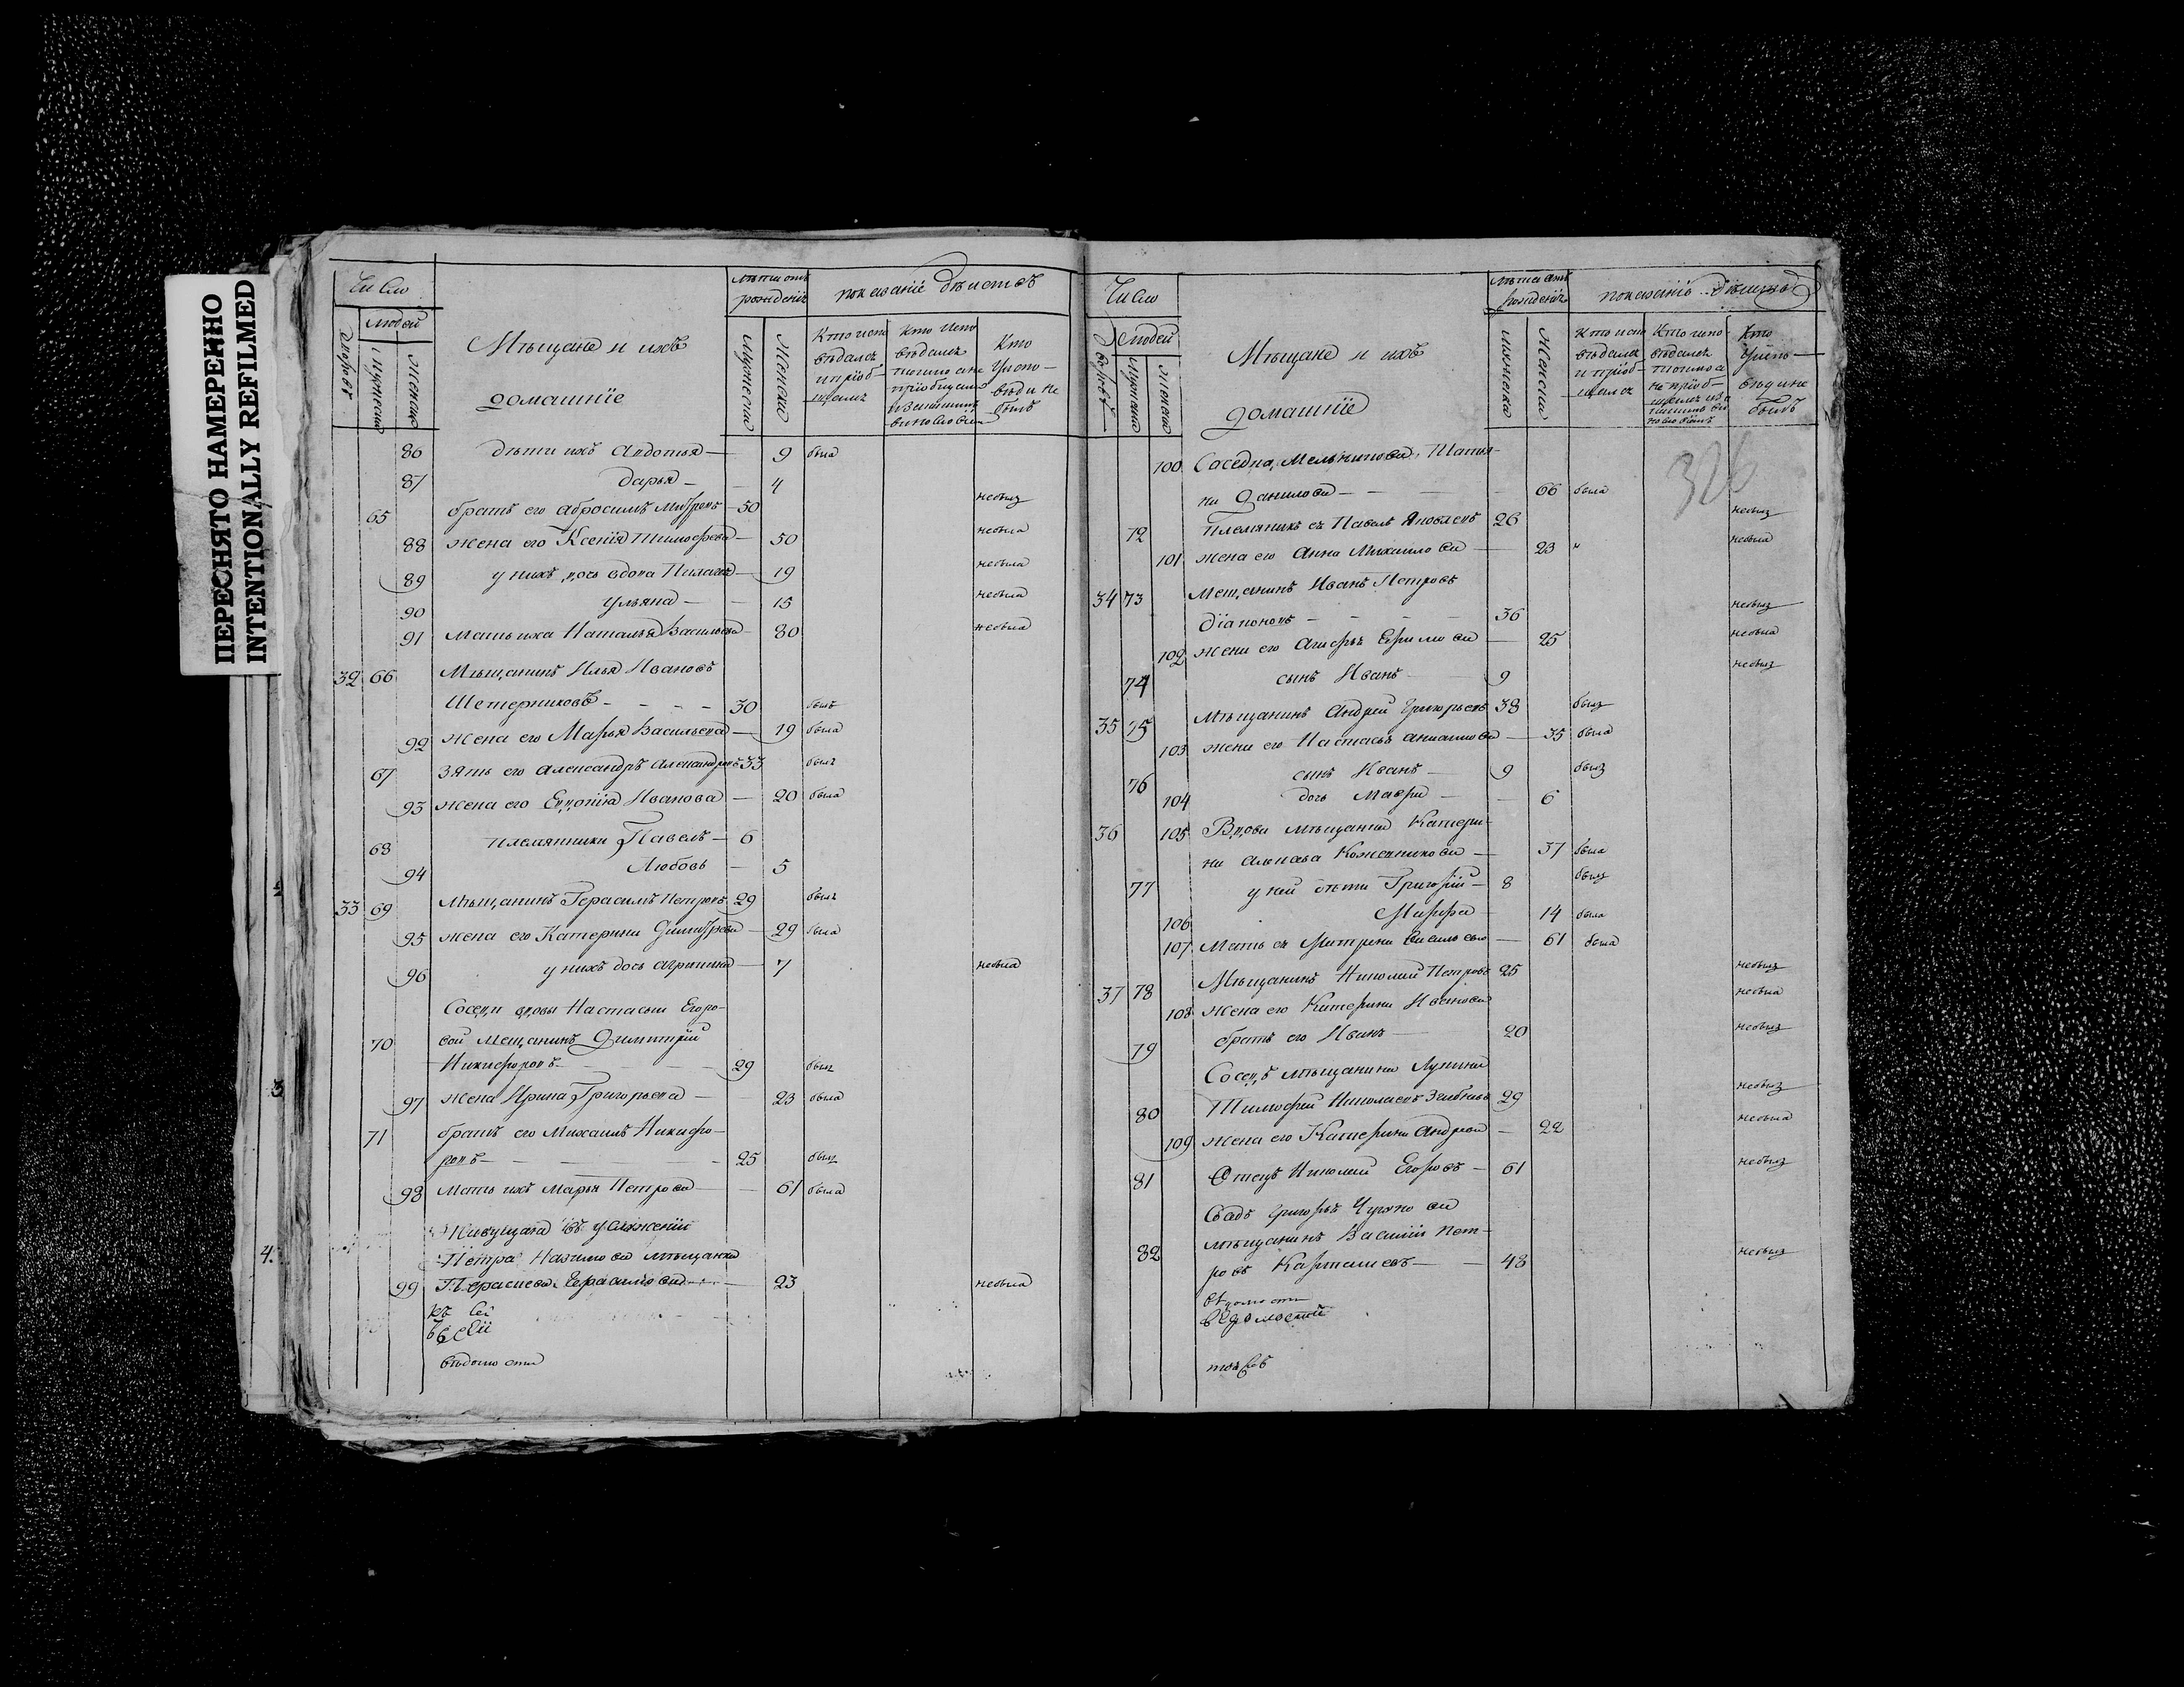 ПЕРЕСНЯТО НАМЕРЕННО
INTENTIONALLY REFILMED
Число
людей
дворовъ
Мужеска
Женска
Мѣщане и ихъ
домашніе
лѣта отъ
рожденія
Мужеска
Женска
показаніе дѣйствъ
Кто испо
вѣдался
и пріоб
щался
Кто испо
вѣдался
Кто
у испо-
вѣди не
былъ
86 дѣти ихъ Авдотья — 9 была
87 дарья — 4
65 братъ его Абросимъ Митревъ — 50 небылъ
88 жена его Ксенія Тимофеева — 50 небыла
89 у нихъ дочь вдова Пилагея — 19 небыла
90 Ульяна — 15 небыла
91 Мать ихъ Наталья Васильева — 80 небыла
32 66 Мѣщанинъ Илья Ивановъ
Шетерниковъ — 30 былъ
92 жена его Марья Васильева — 19 была
67 зять его Александръ Александровъ 33 былъ
93 жена его Иванова — 20 была
68 племянники Павелъ — 6
94 Любовь — 5
33 69 Мѣщанинъ Герасимъ Петровъ 29 былъ
95 жена его Катерина Димитрева — 29 была
96 у нихъ дочь Агрипина — 7 небыла
вдовы Настасьи Егоро-
70 вой Мещанинъ Димитрій
Никифоровъ — 29 былъ
97 жена Ирина Григорьева — 23 была
71 братъ его Михаилъ Никифо-
ровъ — 25 былъ
98 Мать ихъ Марья Петрова — 61 была
Живущая въ услуженіи
Петра мѣщанка
99 23 небыла
къ сей
въ сей
вѣдомости
4.
3
Число
дворовъ
людей
Мужеска
Женска
Мѣщане и ихъ
домашніе
лѣта отъ
рожденія
Мужеска
Женска
показаніе дѣйствъ
Кто испо
вѣдался
и пріоб-
щался
Кто испо-
вѣдался
Кто
у испо-
вѣди не
былъ
326
100 Соседка Мельникова Татья-
на Данилова — 66 была
72 племяникъ ея Павелъ Яковлевъ 26 небылъ
101 жена его Анна Михаилова — 23 небыла
34 73 Мещанинъ Иванъ Петровъ
Діаконовъ — 36 небылъ
102 жена его — 25 небыла
74 сынъ Иванъ — 9 небылъ
35 75 Мѣщанинъ Андрей Григорьевъ 38 былъ
103 жена его Настасья — 35 была
76 сынъ Иванъ — 9 былъ
104 дочь Мавра — 6
36 105 Вдова мѣщанка Катери-
на Кожевникова — 37 была
77 у ней дѣти Григорій — 8 былъ
106 Марфа 14 была
107 Мать ея Матрена Васильева — 61 была
37 78 Мѣщанинъ Николай Петровъ 25 небылъ
108 жена его Катерина Иванова небыла
79 братъ его Иванъ — 20 небылъ
мѣщанина
80 Тимофей Николаевъ 29 небылъ
109 жена его Катерина Андреева — 22 небыла
81 Отецъ Николай Егоровъ — 61 небылъ
82 мѣщанинъ Василій Пет-
ровъ — 43 небылъ
вѣдомости
ведомостей